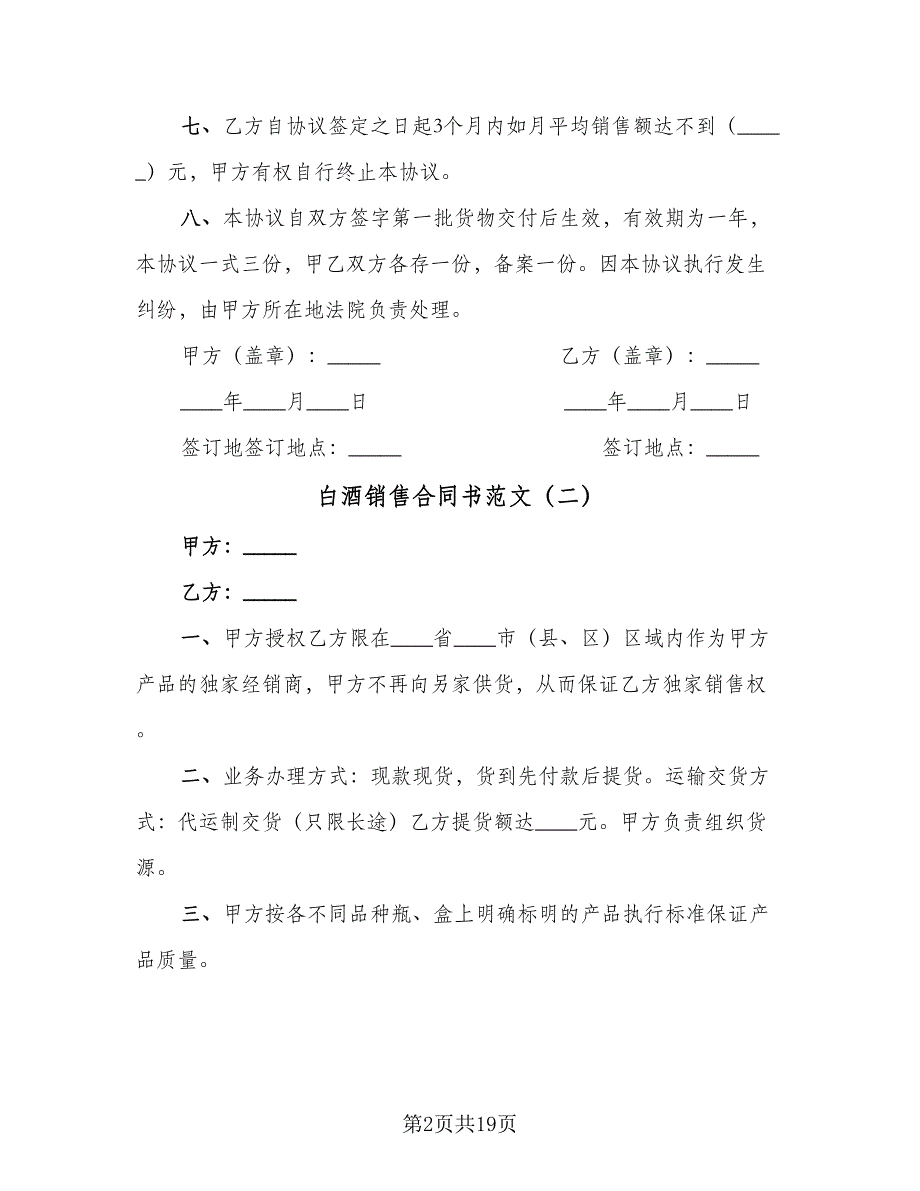 七、乙方自协议签定之日起3个月内如月平均销售额达不到（____
_）元，甲方有权自行终止本协议。
八、本协议自双方签字第一批货物交付后生效，有效期为一年，
本协议一式三份，甲乙双方各存一份，备案一份。因本协议执行发生
纠纷，由甲方所在地法院负责处理。
甲方（盖章）：_____ 乙方（盖章）：_____
____年____月____日 ____年____月____日
签订地签订地点：_____ 签订地点：_____
白酒销售合同书范文（二）
甲方：_____
乙方：_____
一、甲方授权乙方限在____省____市（县、区）区域内作为甲方
产品的独家经销商，甲方不再向另家供货，从而保证乙方独家销售权
。
二、业务办理方式：现款现货，货到先付款后提货。运输交货方
式：代运制交货（只限长途）乙方提货额达____元。甲方负责组织货
源。
三、甲方按各不同品种瓶、盒上明确标明的产品执行标准保证产
品质量。
第2页共19页